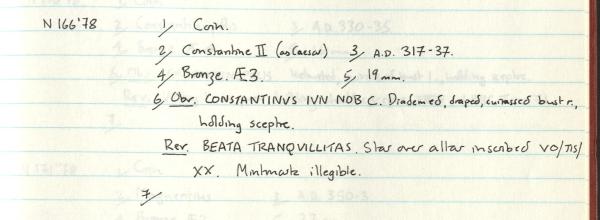 N 166'78 1/ Coin.
2/ Constantine II (as Caesar) 3/ A.D. 317-37.
4/ Bronze. Æ3. 5/ 19mm.
6/ Obv. CONSTANTINVS IVN NOB C. Diademed, draped, cuirassed bust r.,
holding sceptre.
Rev. BEATA TRANQVILLITAS. Star over altar inscribed VO/TIS/
XX. Mintmark illegible.
7/